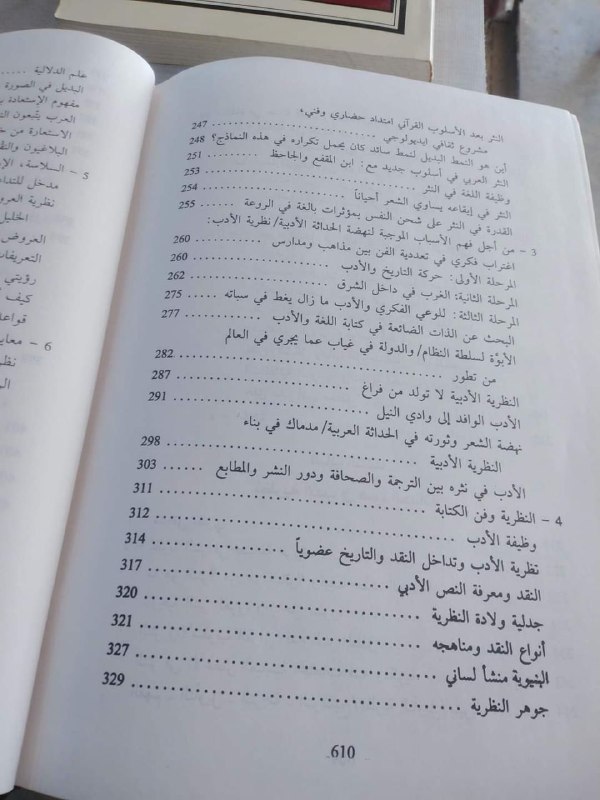 النثر بعد الأسلوب القرآني امتداد حضاري وفني،
مشروع ثقافي ايديولوجي ........ 247
أين هو النمط البديل لنمط سائد كان يحمل تكراره في هذه النماذج؟ 248
النثر العربي في أسلوب جديد مع: ابن المقفع والجاحظ ........ 251
وظيفة اللغة في النثر ........ 253
النثر في إيقاعه يساوي الشعر أحياناً ........ 254
القدرة في النثر على شحن النفس بمؤثرات بالغة في الروعة ........ 255
3 - من أجل فهم الأسباب الموجبة لنهضة الحداثة الأدبية/نظرية الأدب:
اغتراب فكري في تعددية الفن بين مذاهب ومدارس ........ 260
المرحلة الأولى: حركة التاريخ والأدب ........ 260
المرحلة الثانية: الغرب في داخل الشرق ........ 262
المرحلة الثالثة: للوعي الفكري والأدب ما زال يغط في سباته ........ 275
البحث عن الذات الضائعة في كتابة اللغة والأدب ........ 277
الأبوّة لسلطة النظام/والدولة في غياب عما يجري في العالم
من تطور ........ 282
النظرية الأدبية لا تولد من فراغ ........ 287
الأدب الوافد إلى وادي النيل ........ 291
نهضة الشعر وثورته في الحداثة العربية/مدماك في بناء
النظرية الأدبية ........ 298
الأدب في نثره بين الترجمة والصحافة ودور النشر والمطابع ........ 303
4 - النظرية وفن الكتابة ........ 311
وظيفة الأدب ........ 312
نظرية الأدب وتداخل النقد والتاريخ عضوياً ........ 314
النقد ومعرفة النص الأدبي ........ 317
جدلية ولادة النظرية ........ 320
أنواع النقد ومناهجه ........ 321
البنيوية منشأ لساني ........ 327
جوهر النظرية ........ 329
610
علم الدلالية ........
البديل في الصورة
مفهوم الإستعادة
العرب يتبعون
الاستعارة من
البلاغيون
5 - السلاسة،
مدخل للنداء
نظرية العرو
الخليل
العروض
التعريفات
رؤيتي
كيف
قواعد
6 - معاي
نظر